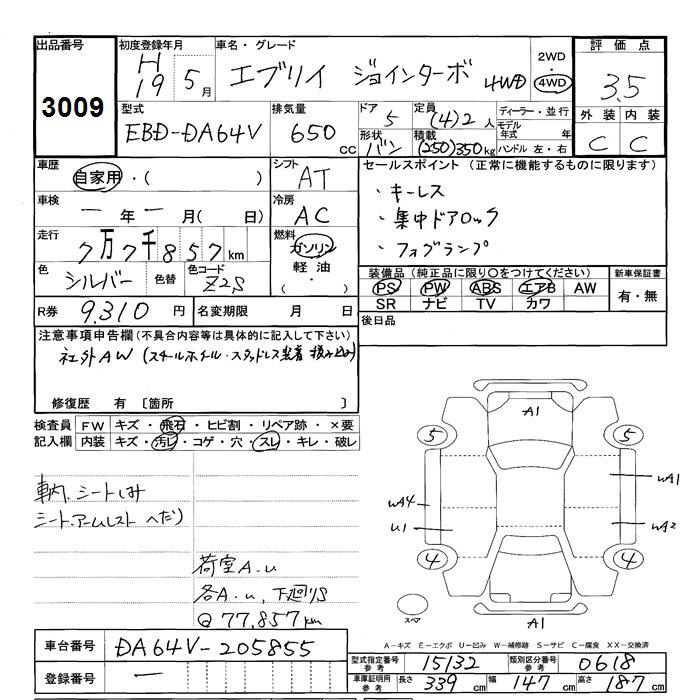 出品番号 3009
初度登録年月 H19 5月
車名・グレード エブリイ ジョインターボ 4WD
2WD・4WD
評価点 3.5
型式 EBD-DA64V
排気量 650cc
ドア 5
定員 (4)2人
形状 バン
積載 (250)350kg
ディーラー・並行
モデル年式 年
ハンドル 左・右
外装 内装
C C
車歴 自家用・( )
シフト AT
セールスポイント (正常に機能するものに限ります)
・キーレス
・集中ドアロック
・フォグランプ
車検 ー年ー月( 日)
冷房 AC
走行 7万7千857km
燃料 ガソリン 軽油・( ・ )
色 シルバー 色替
色コード Z2S
装備品 (純正品に限り○をつけてください)
PS PW ABS エアB AW
SR ナビ TV カワ
新車保証書
有・無
R券 9,310円
名変期限 月 日
後日品
注意事項申告欄 (不具合内容等は具体的に記入して下さい)
社外AW (スチールホイル・スタッドレス装着 積み込み)
修復歴 有 〔箇所 〕
検査員記入欄
FW キズ・飛石・ヒビ割・リペア跡・×要
内装 キズ・汚レ・コゲ・穴・スレ・キレ・破レ
車内、シートしみ
シート、アームレスト へだり
荷室A.u
各A.u、下廻りS
◎77,857km
A1
5 5
WA4
U1
WA1
WA2
4 4
スペア
A1
A―キズ E―エクボ U―凹み W―補修跡 S―サビ C―腐食 XX―交換済
車台番号 DA64V-205855
登録番号 ー
型式指定番号 参考 15132
類別区分番号 参考 0618
車庫証明用 参考 長さ 339cm 幅 147cm 高さ 187cm